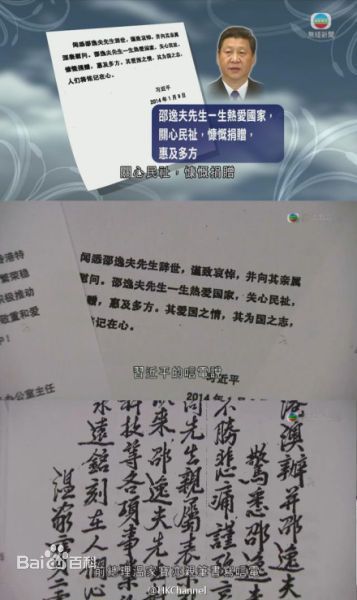 無綫新聞
邵逸夫先生辞世，谨致哀悼，并向其亲属
慰问。邵逸夫先生一生热爱国家，关心民祉，
慷慨捐赠，惠及多方。其爱国之情，其为国之志，
人们将怀记在心。
习近平
2014年1月9日
邵逸夫先生一生熱愛國家，
關心民祉，慷慨捐贈，
惠及多方
關心民祉，慷慨捐贈
闻悉邵逸夫先生辞世，谨致哀悼，并向其亲属
慰问。邵逸夫先生一生热爱国家，关心民祉，
赠，惠及多方。其爱国之情，其为国之志，
怀记在心。
习近平
2014年
香港特
繁荣稳
积极推动
敬重和爱
办公室主任
習近平的唁電說
港澳辦并邵逸夫
驚悉邵逸夫
不勝悲痛謹
向先生親屬表
以來邵逸夫先
科技等各項事業
永遠銘刻在人們心
溫家寶
前總理溫家寶亦親筆書寫唁電
Bai百科
@HKChannel